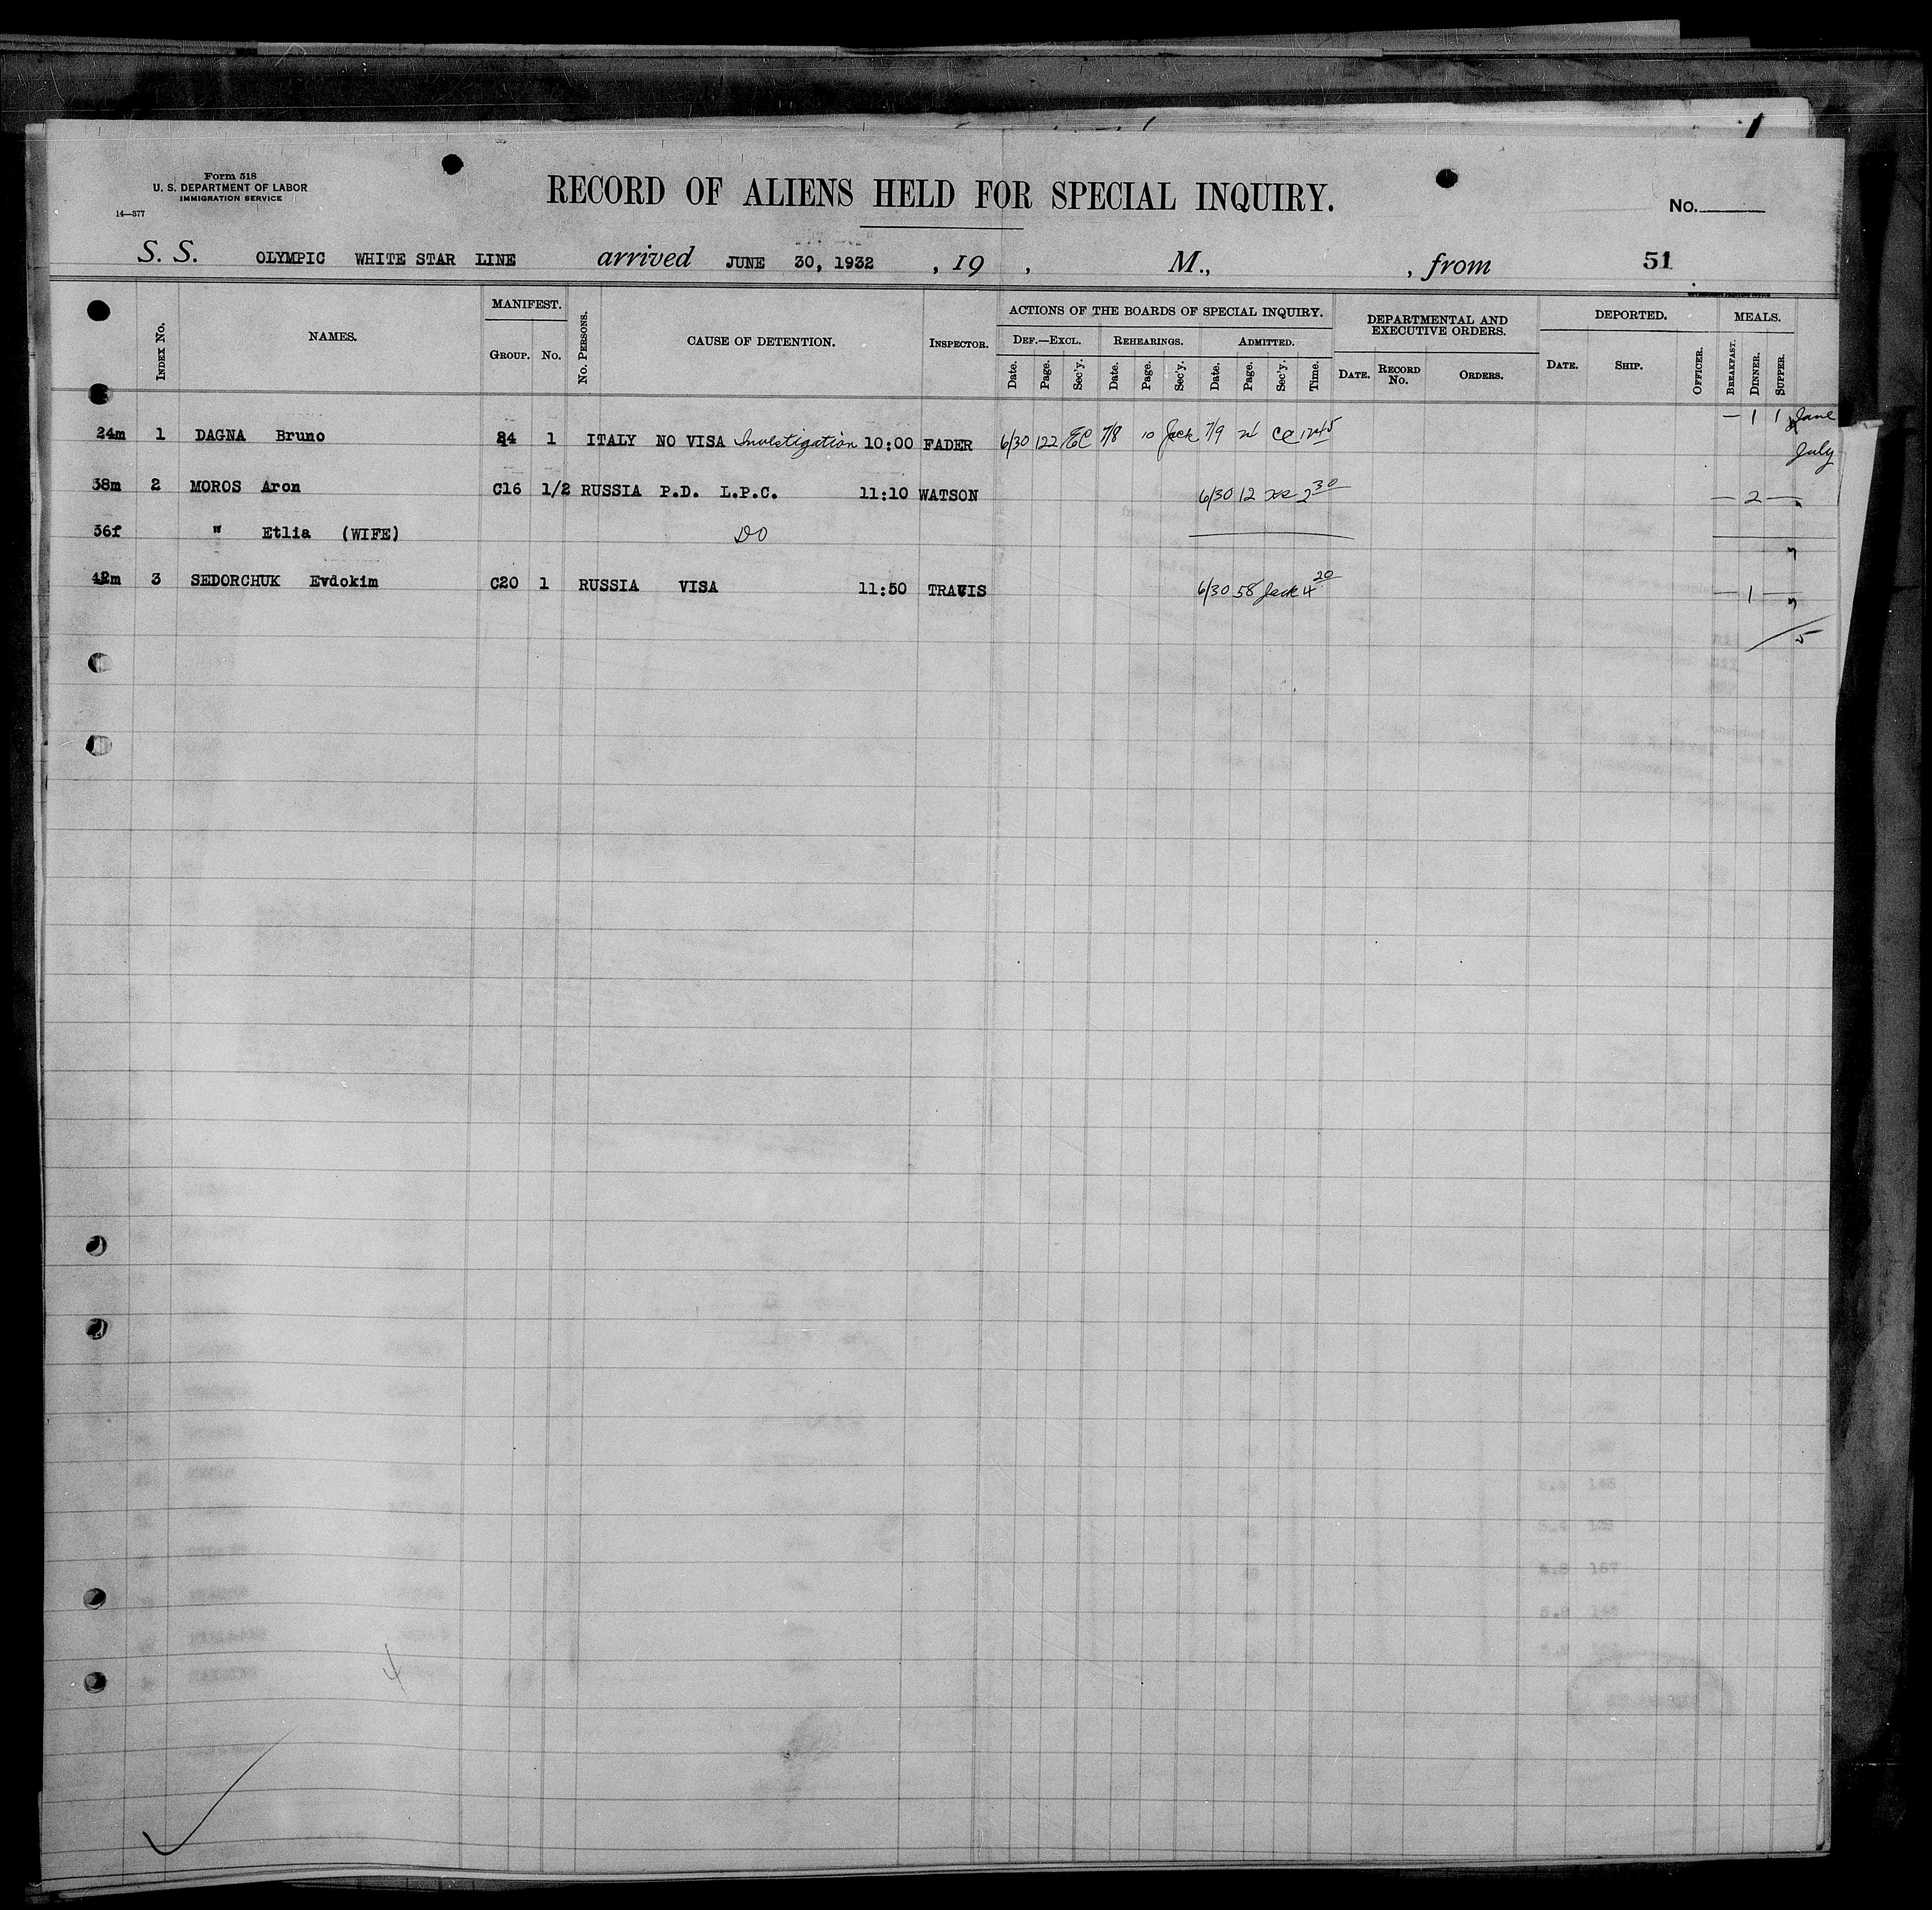 Form 518
U. S. DEPARTMENT OF LABOR
IMMIGRATION SERVICE
14—377
RECORD OF ALIENS HELD FOR SPECIAL INQUIRY.
No.
S. S. OLYMPIC WHITE STAR LINE arrived JUNE 30, 1932 , 19 , M., , from 51
INDEX No. NAMES. MANIFEST. GROUP. No. No. PERSONS. CAUSE OF DETENTION. INSPECTOR. ACTIONS OF THE BOARDS OF SPECIAL INQUIRY. DEPARTMENTAL AND EXECUTIVE ORDERS. DEPORTED. MEALS.
DEF.—EXCL. REHEARINGS. ADMITTED.
Date. Page. Sec'y. Date. Page. Sec'y. Date. Page. Sec'y. Time. DATE. RECORD No. ORDERS. DATE. SHIP. OFFICER. BREAKFAST. DINNER. SUPPER.
— 1 1 June
24m 1 DAGNA Bruno 4 1 ITALY NO VISA Investigation 10:00 FADER 6/30 122 EC 7/8 10 Jack 7/9 CC
July
38m 2 MOROS Aron C16 1/2 RUSSIA P.D. L.P.C. 11:10 WATSON 6/30 12 2 30 — 2 —
36f " Etlia (WIFE) DO
42m 3 SEDORCHUK Evdokim C20 1 RUSSIA VISA 11:50 TRAVIS 6/30 58 Jack 4 20 — 1 —
5